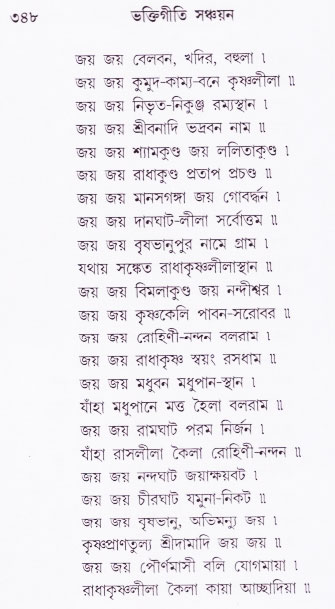 ৩৪৮ ভক্তিগীতি সঞ্চয়ন
জয় জয় বেলবন, খদির, বহুলা ৷
জয় জয় কুমুদ-কাম্য-বনে কৃষ্ণলীলা ৷৷
জয় জয় নিভৃত-নিকুঞ্জ রম্যস্থান ৷
জয় জয় শ্রীবনাদি ভদ্রবন নাম ৷৷
জয় জয় শ্যামকুণ্ড জয় ললিতাকুণ্ড ৷
জয় জয় রাধাকুণ্ড প্রতাপ প্রচণ্ড ৷৷
জয় জয় মানসগঙ্গা জয় গোবর্দ্ধন ৷
জয় জয় দানঘাট-লীলা সর্বোত্তম ৷৷
জয় জয় বৃষভানুপুর নামে গ্রাম ৷
যথায় সঙ্কেত রাধাকৃষ্ণলীলাস্থান ৷৷
জয় জয় বিমলাকুণ্ড জয় নন্দীশ্বর ৷
জয় জয় কৃষ্ণকেলি পাবন-সরোবর ৷৷
জয় জয় রোহিণী-নন্দন বলরাম ৷
জয় জয় রাধাকৃষ্ণ স্বয়ং রসধাম ৷৷
জয় জয় মধুবন মধুপান-স্থান ৷
যাঁহা মধুপানে মত্ত হৈলা বলরাম ৷৷
জয় জয় রামঘাট পরম নির্জন ৷
যাঁহা রাসলীলা কৈলা রোহিণী-নন্দন ৷৷
জয় জয় নন্দঘাট জয়াক্ষয়বট ৷
জয় জয় চীরঘাট যমুনা-নিকট ৷৷
জয় জয় বৃষভানু, অভিমন্যু জয় ৷
কৃষ্ণপ্রাণতুল্য শ্রীদামাদি জয় জয় ৷৷
জয় জয় পৌর্ণমাসী বলি যোগমায়া ৷
রাধাকৃষ্ণলীলা কৈলা কায়া আচ্ছাদিয়া ৷৷